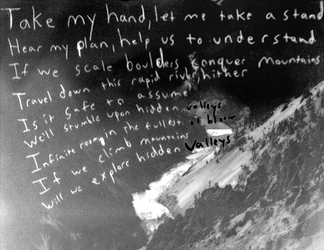 Take my hand, let me take a stand
Hear my plan, help us to understand
If we scale boulders, conquer mountains
Travel down this rapid river, hither
Is it safe to assume
We'll stumble upon hidden valleys
Infinite roaring in the fullest of bloom
If we climb mountains
Will we explore hidden Valleys